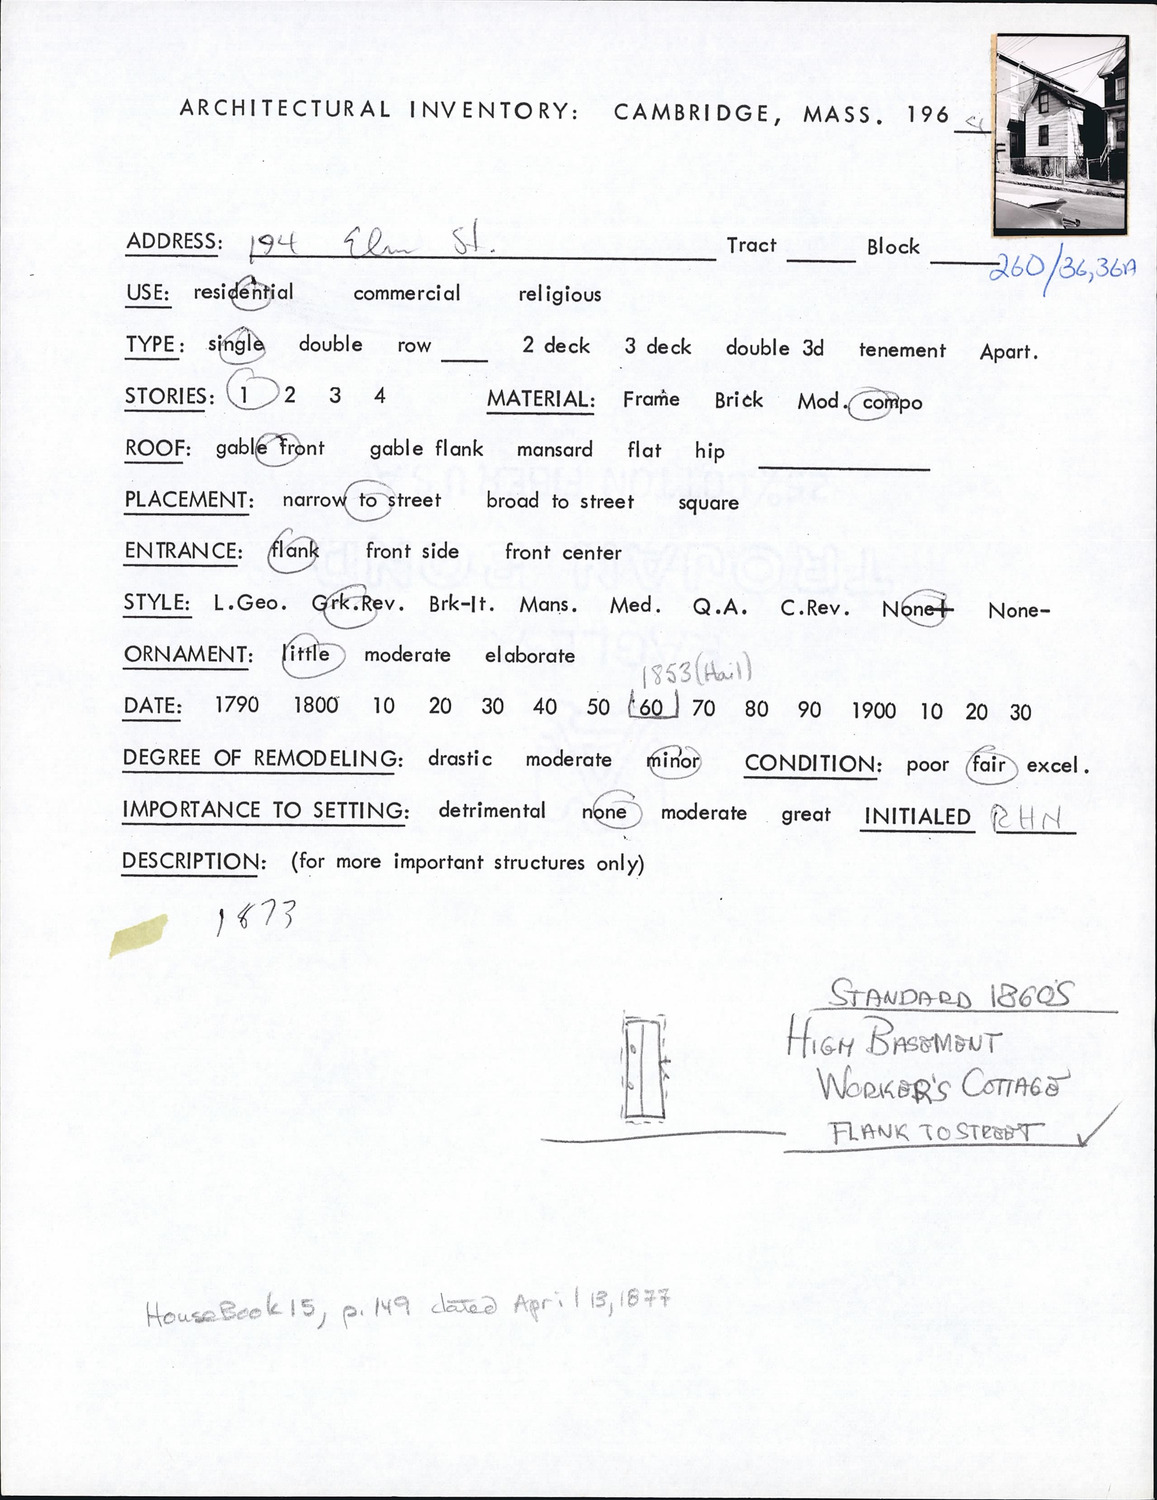 ARCHITECTURAL INVENTORY: CAMBRIDGE, MASS. 196
ADDRESS: 194 Elm St. Tract Block
260/36,36A
USE: residential commercial religious
TYPE: single double row 2 deck 3 deck double 3d tenement Apart.
STORIES: 1 2 3 4 MATERIAL: Frame Brick Mod. compo
ROOF: gable front gable flank mansard flat hip
PLACEMENT: narrow to street broad to street square
ENTRANCE: flank front side front center
STYLE: L.Geo. Grk.Rev. Brk-It. Mans. Med. Q.A. C.Rev. None+ None-
ORNAMENT: little moderate elaborate
1853 (Hail)
DATE: 1790 1800 10 20 30 40 50 60 70 80 90 1900 10 20 30
DEGREE OF REMODELING: drastic moderate minor CONDITION: poor fair excel.
IMPORTANCE TO SETTING: detrimental none moderate great INITIALED RHN
DESCRIPTION: (for more important structures only)
1873
STANDARD 1860'S
HIGH BASEMENT
WORKER'S COTTAGE
FLANK TO STREET
HouseBook 15, p. 149 dated April 13, 1877